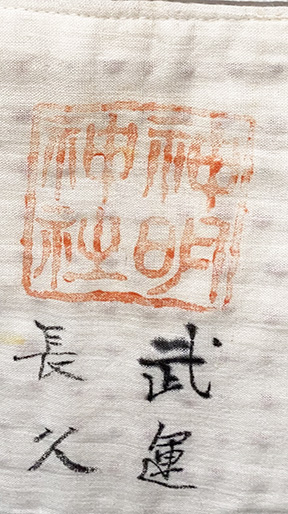 神明
神社
武運
長久